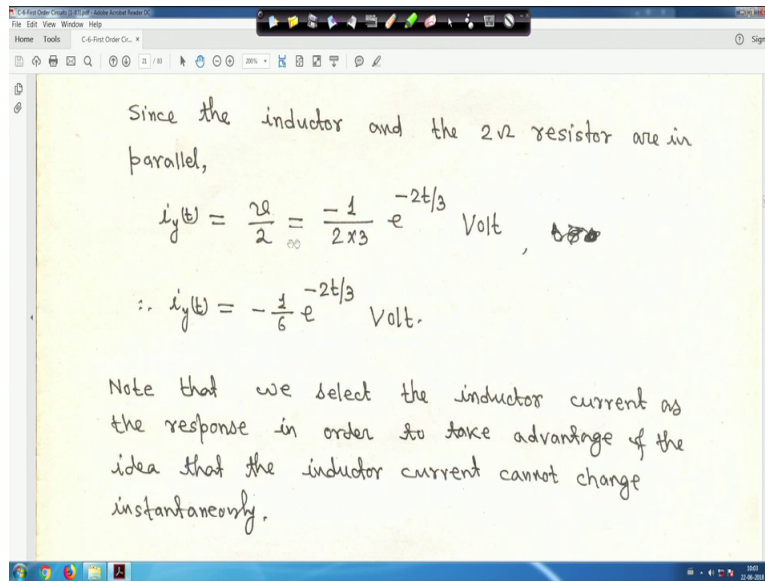 C-6-First Order Circuits [1-83].pdf - Adobe Acrobat Reader DC
File Edit View Window Help
Home Tools C-6-First Order Cir... × Sign
21 / 83 200%
Since the inductor and the 2Ω resistor are in
parallel,
i_y(t) = v/2 = -1/(2×3) e^(-2t/3) Volt,
∴ i_y(t) = -1/6 e^(-2t/3) Volt.
Note that we select the inductor current as
the response in order to take advantage of the
idea that the inductor current cannot change
instantaneously.
10:03
22-06-2018